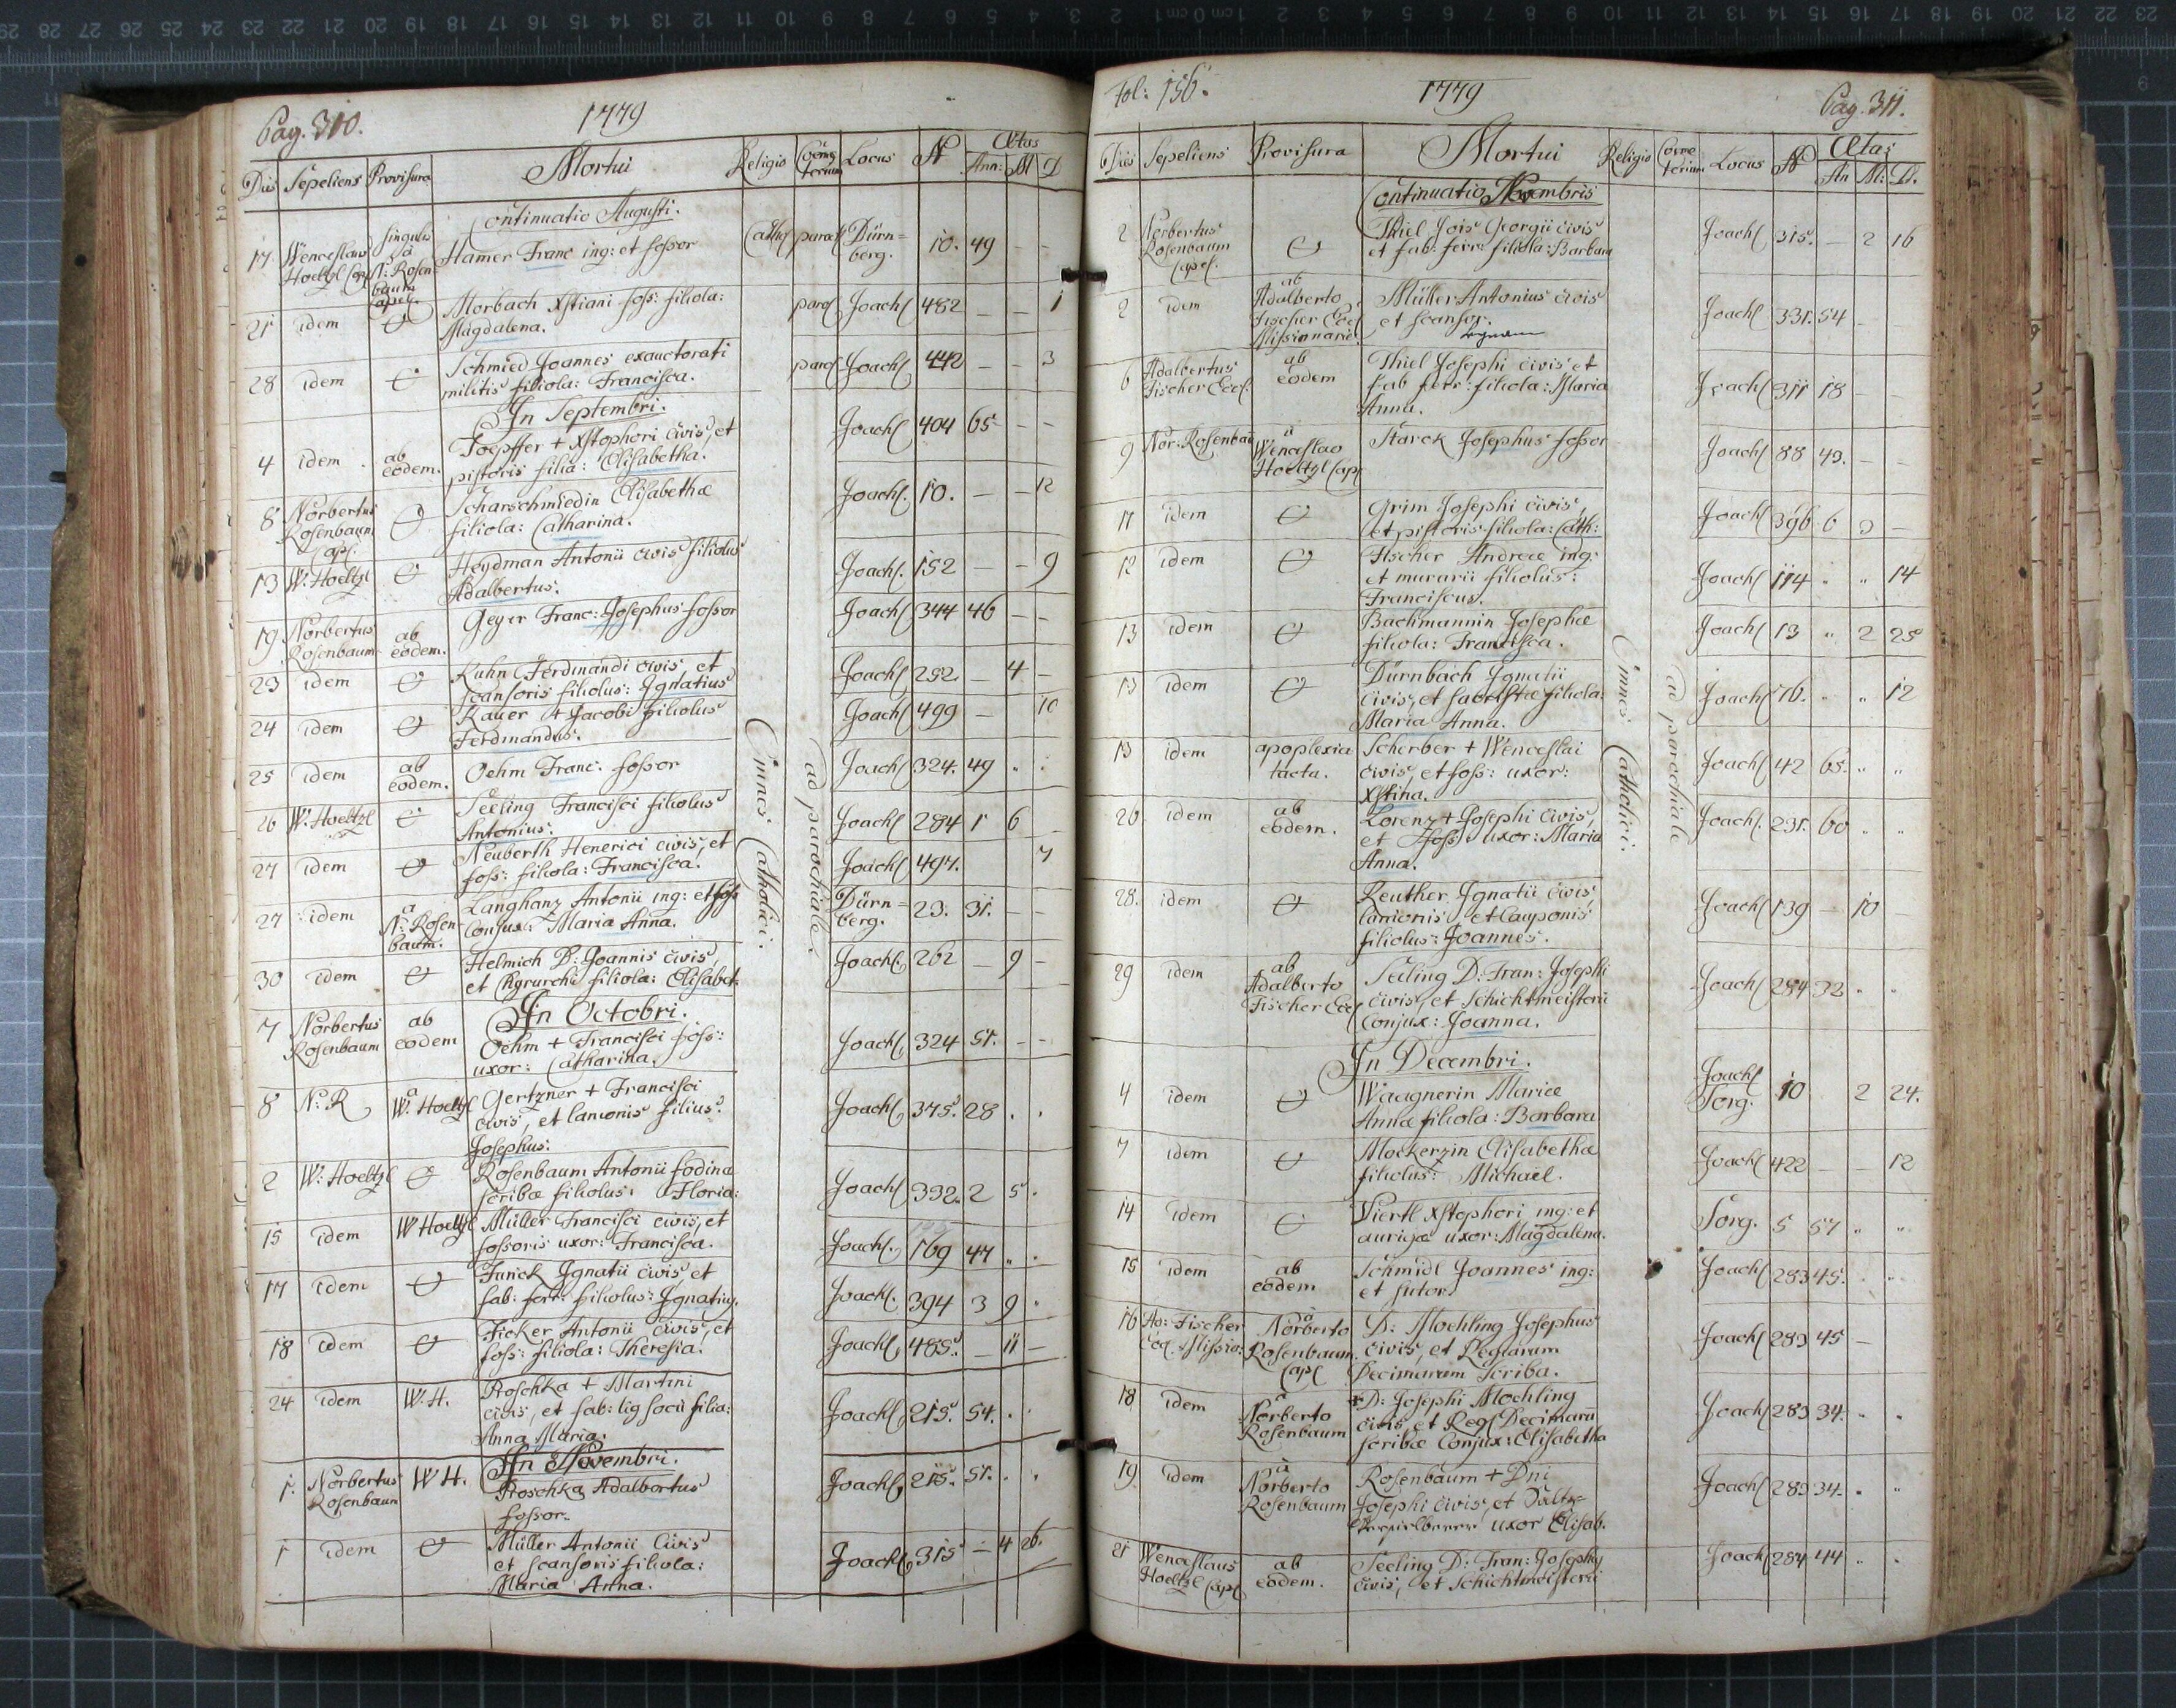 Pag. 310. 1779
Dies Sepeliens Provisura Mortui Religio Cœme Locus N Ætas
terium Ann: M D
Continuatio Augusti.
17. Wenceslaus Hoeltzl Cap. singulis à N: Rosenbaum Capel. Hamer Franc ing: et fossor Cathol paroch Dürnberg. 10. 49 – –
21 idem Morbach Xstiani foss: filiola: Magdalena. paroch Joach 482 – – 1
28 idem Schmied Joannes exauctorati militis filiola: Francisca. paroch Joach 442 – – 3
In Septembri.
4 idem ab eodem. Toepffer + Xstophori civis, et pistoris filia: Elisabetha. Joach 404 65 – –
8 Norbertus Rosenbaum cap. Scharschmiedin Elisabethæ filiola: Catharina. Joach. 10. – – 12
13 W: Hoeltzl Heydman Antonii civis filiolus Adalbertus. Joach. 152 – – 9
19 Norbertus Rosenbaum ab eodem. Geyer Franc: Josephus fossor Joach 344 46 – –
23 idem Kuhn Ferdinandi civis, et scansoris filiolus: Ignatius Joach 292 – 4 –
24 idem Kauer + Jacobi filiolus Ferdinandus. Joach 499 – 10
25 idem ab eodem. Oehm Franc. fossor Joach 324. 49
26 W: Hoeltzl Seeling Francisci filiolus Antonius. Joach 284 1 6 –
27 idem Neuberth Henerici civis, et foss: filiola: Francisca. Joach 497. 7
27 idem a N: Rosenbaum. Langhanz Antonii ing: et foss Conjux: Maria Anna. Dürnberg. 23. 31. – –
30 idem Helmich D: Joannis civis, et Chyrurchi filiola: Elisabet: Joach 262 – 9 –
In Octobri.
7 Norbertus Rosenbaum ab eodem Oehm + Francisci foss: uxor: Catharina. Joach 324 51. – –
8 N: R à W: Hoeltzl Gertzner + Francisci civis, et lanionis filius: Josephus: Joach 375. 28 . .
2 W: Hoeltzl Rosenbaum Antonii fodinæ scribæ filiolus: Floria: Joach 332. 2 5 .
15 idem W Hoeltzl Müller Francisci civis, et fossoris uxor: Francisca. Joach. 169 47 „ .
17 idem Funck Ignatii civis, et fab: ferr: filiolus: Ignatius. Joach. 394 3 9 .
18 idem Ficker Antonii civis, et foss: filiola: Theresia. Joach 485. – 11 –
24 idem W. H. Proschka + Martini civis, et fab: lig socii filia: Anna Maria. Joach 215. 54. . .
In Novembri.
1. Norbertus Rosenbaum W H. Proschka Adalbertus fossor. Joach 215. 51. . .
1 idem Müller Antonii Civis et scansoris filiola: Maria Anna. Joach 315 – 4 26.
Omnes Catholici.
ad parochiale.
Fol: 156. 1779 Pag. 311.
Dies Sepeliens Provisura Mortui Religio Cœme Locus N Ætas
terium An M: D.
Continuatio Novembris
2 Norbertus Rosenbaum Capel. Thiel Jois Georgii civis et fab: ferr: filiola: Barbara Joach 315. – 2 16
2 idem ab Adalberto Fischer Eccl Missionario Müller Antonius civis et scansor. Joach 331. 54
6 Adalbertus Fischer Eccl. ab eodem Thiel Josephi civis et fab ferr: filiola: Maria Anna. Joach 311 18 – –
9 Nor: Rosenbau à Wenceslao Hoeltzl Cap Starck Josephus fossor Joach 88 43. – –
11 idem Grim Josephi civis, et pistoris filiola: Cath: Joach 396 6 3 –
12 idem Fischer Andreæ ing: et murarii filiolus: Franciscus. Joach 114 „ „ 14
13 idem Bachmannin Josephæ filiola: Francisca. Joach 13 „ 2 25
13 idem Dürnbach Ignatii civis, et sacristæ filiola: Maria Anna. Joach 76. „ „ 12
13 idem apoplexia tacta. Scherber + Wenceslai civis, et foss: uxor: Xstina. Joach 42 65. „ „
20 idem ab eodem. Lorenz + Josephi civis, et foss: uxor: Maria Anna. Joach. 231. 60 „ „
28. idem Reuther Ignatii civis, lanionis, et Cauponis filiolus: Joannes. Joach 139 – 10 –
29 idem ab Adalberto Fischer Eccl Seeling D: Fran: Josephi civis, et Schichtmeisterii Conjux: Joanna. Joach 284 32 „ „
In Decembri.
4 idem Waagnerin Mariæ Annæ filiola: Barbara Joach Sorg. 10 2 24.
7 idem Mockerzin Elisabethæ filiolus: Michaël. Joach 422 – – 12
14 idem Viertl Xstophori ing: et aurigæ uxor: Magdalena. Sorg. 5 57 „ „
15 idem ab eodem Schmidl Joannes ing: et sutor. Joach 283 45. . .
16 Ad: Fischer Eccl. Missio: à Norberto Rosenbaum Cap D: Mochling Josephus civis, et Regiarum Decimarum scriba. Joach 283 45 –
18 idem à Norberto Rosenbaum D: Josephi Mochling civis et Reg Decimarū scribæ Conjux: Elisabetha Joach 283 34. „ „
19 idem à Norberto Rosenbaum Rosenbaum + Dni Josephi civis, et uxor Elisab. Joach 283 34. „ „
21 Wenceslaus Hoeltzl Cap ab eodem. Seeling D: Fran: Josephus civis, et Schichtmeisterii Joach 284 44 „ .
Omnes Catholici.
ad parochiale